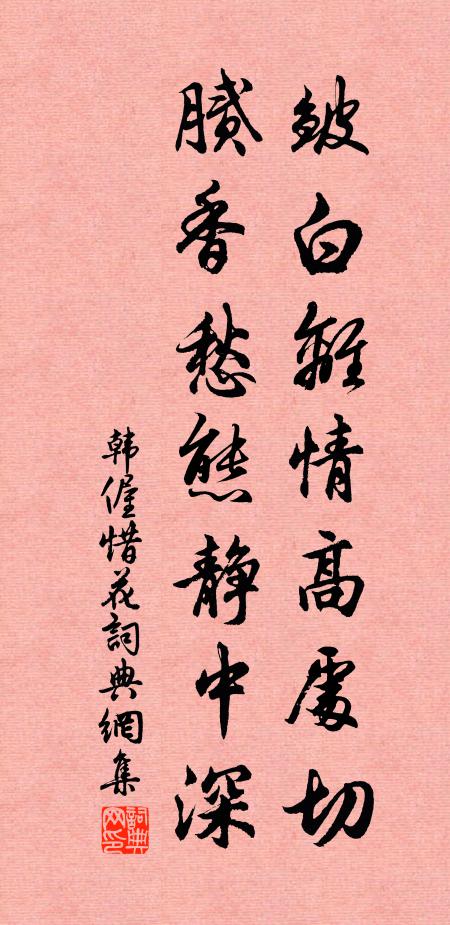 皺白離情高處切
膩香愁態静中深
韓偓惜花詞典網集
詞典网印